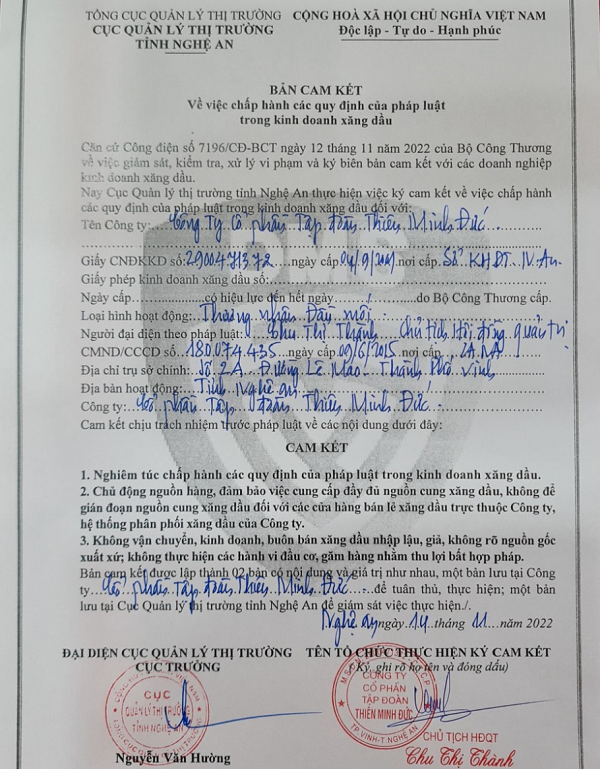 TỔNG CỤC QUẢN LÝ THỊ TRƯỜNG
CỤC QUẢN LÝ THỊ TRƯỜNG
TỈNH NGHỆ AN
CỘNG HOÀ XÃ HỘI CHỦ NGHĨA VIỆT NAM
Độc lập - Tự do - Hạnh phúc
BẢN CAM KẾT
Về việc chấp hành các quy định của pháp luật
trong kinh doanh xăng dầu
Căn cứ Công điện số 7196/CĐ-BCT ngày 12 tháng 11 năm 2022 của Bộ Công Thương
về việc giám sát, kiểm tra, xử lý vi phạm và ký biên bản cam kết với các doanh nghiệp
kinh doanh xăng dầu.
Nay Cục Quản lý thị trường tỉnh Nghệ An thực hiện việc ký cam kết về việc chấp hành
các quy định của pháp luật trong kinh doanh xăng dầu đối với:
Tên Công ty: Công Ty Cổ phần Tập đoàn Thiên Minh Đức
Giấy CNĐKKD số: 2900471372 ngày cấp 04/9/2001 nơi cấp Sở KHĐT N.An
Giấy phép kinh doanh xăng dầu số:
Ngày cấp có hiệu lực đến hết ngày do Bộ Công Thương cấp.
Loại hình hoạt động: Thương nhân Đầu mối
Người đại diện theo pháp luật: Chu Thị Thành Chủ tịch Hội đồng quản trị
CMND/CCCD số 180.074.435 ngày cấp 09/6/2015 nơi cấp CA.NA
Địa chỉ trụ sở chính: Số 2A Đường Lê Mao Thành Phố Vinh
Địa bàn hoạt động: Tỉnh Nghệ an
Công ty: Cổ phần Tập đoàn Thiên Minh Đức
Cam kết chịu trách nhiệm trước pháp luật về các nội dung dưới đây:
CAM KẾT
1. Nghiêm túc chấp hành các quy định của pháp luật trong kinh doanh xăng dầu.
2. Chủ động nguồn hàng, đảm bảo việc cung cấp đầy đủ nguồn cung xăng dầu, không để
gián đoạn nguồn cung xăng dầu đối với các cửa hàng bán lẻ xăng dầu trực thuộc Công ty,
hệ thống phân phối xăng dầu của Công ty.
3. Không vận chuyển, kinh doanh, buôn bán xăng dầu nhập lậu, giả, không rõ nguồn gốc
xuất xứ; không thực hiện các hành vi đầu cơ, găm hàng nhằm thu lợi bất hợp pháp.
Bản cam kết được lập thành 02 bản có nội dung và giá trị như nhau, một bản lưu tại Công
ty Cổ phần Tập đoàn Thiên Minh Đức để tuân thủ, thực hiện; một bản
lưu tại Cục Quản lý thị trường tỉnh Nghệ An để giám sát việc thực hiện./.
Nghệ an ngày 14 tháng 11 năm 2022
ĐẠI DIỆN CỤC QUẢN LÝ THỊ TRƯỜNG
CỤC TRƯỞNG
CỤC
QUẢN LÝ THỊ TRƯỜNG
TỈNH NGHỆ AN
Nguyễn Văn Hường
TÊN TỔ CHỨC THỰC HIỆN KÝ CAM KẾT
(Ký, ghi rõ họ tên và đóng dấu)
CÔNG TY
CỔ PHẦN
TẬP ĐOÀN
THIÊN MINH ĐỨC
TP.VINH-T.NGHỆ AN
CHỦ TỊCH HĐQT
Chu Thị Thành